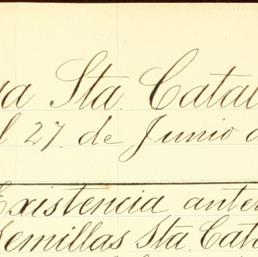 ya Sta. Catal
l 27 de Junio d
Existencia anter
Semillas Sta. Cat